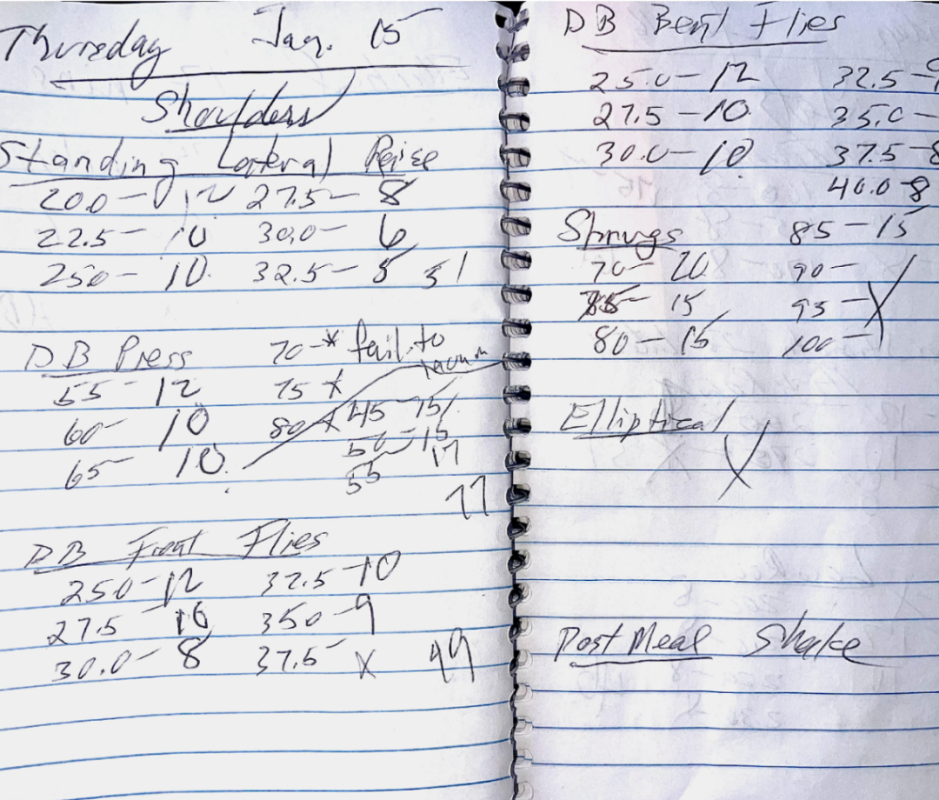 Thursday Jan. 15
Shoulders
Standing Lateral Raise
20.0 - 12 27.5 - 8
22.5 - 10 30.0 - 6
25.0 - 10 32.5 - 5 51
DB Press 70 - * fail to
55 - 12 75 x
60 - 10 80 x 45 - 15
65 - 10 50 - 15
55 17
77
DB Front Flies
25.0 - 12 32.5 - 10
27.5 10 35.0 - 9
30.0 - 8 37.5 x 49
DB Bent Flies
25.0 - 12 32.5 -
27.5 - 10 35.0 -
30.0 - 10 37.5 - 8
40.0 - 8
Shrugs 85 - 15
70 - 20 90 -
15 95 - X
80 - 15 100 -
Elliptical X
Post Meal Shake